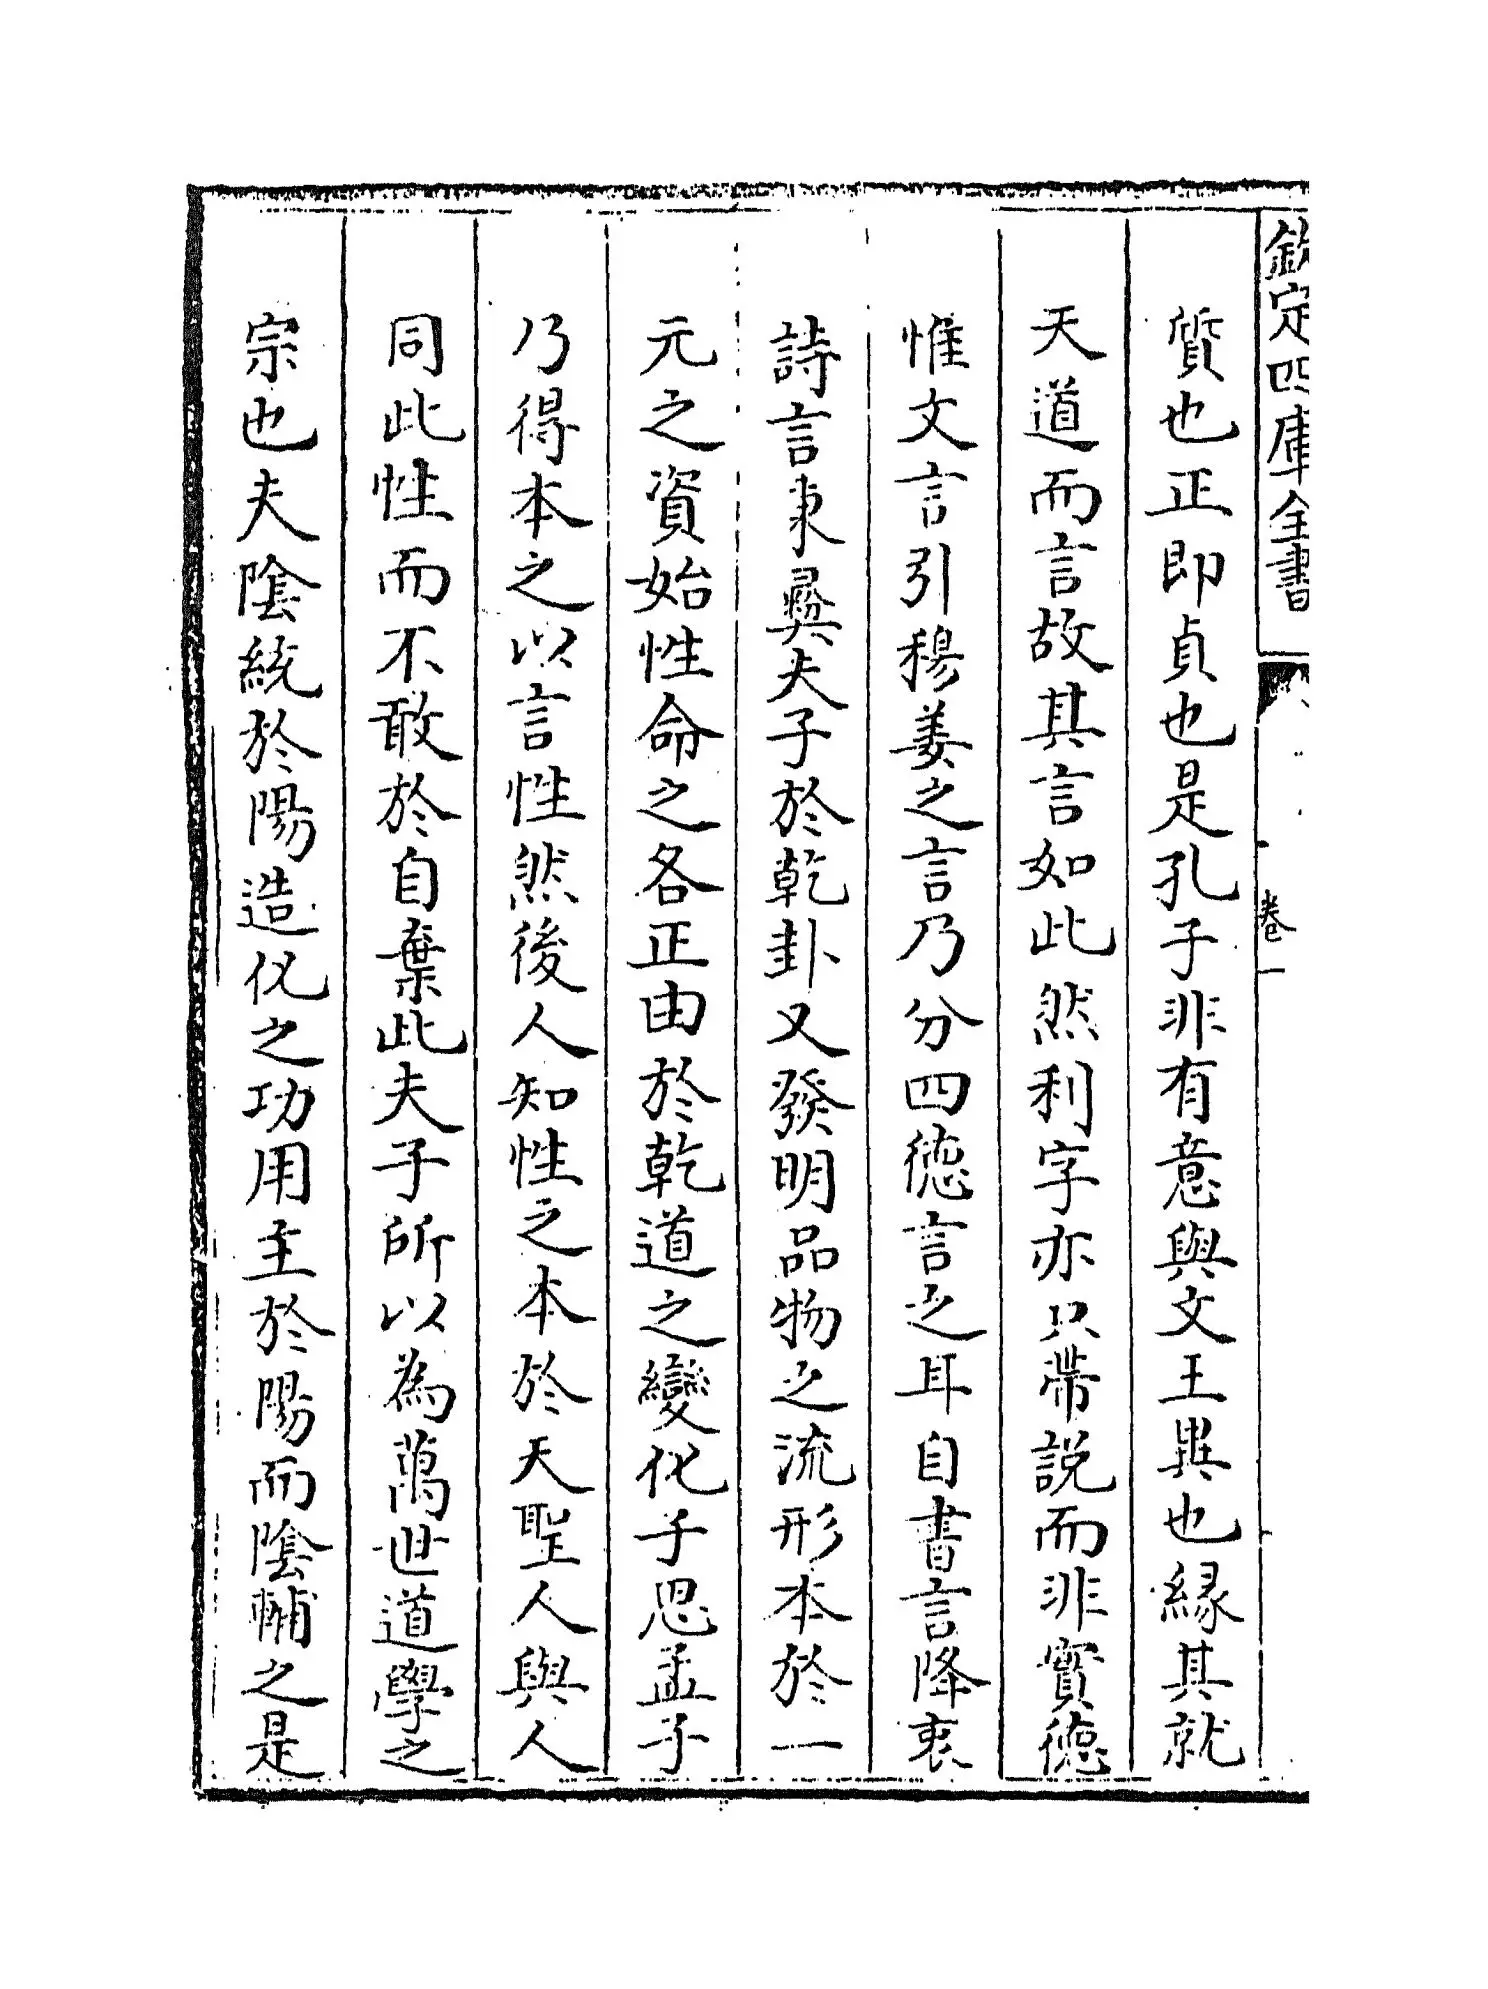 欽定四庫全書
卷一
質也正即貞也是孔子非有意與文王異也緣其就
天道而言故其言如此然利字亦只帶説而非實徳
惟文言引穆姜之言乃分四徳言之耳自書言降衷
詩言秉彛夫子於乾卦又發明品物之流形本於一
元之資始性命之各正由於乾道之變化子思孟子
乃得本之以言性然後人知性之本於天聖人與人
同此性而不敢於自棄此夫子所以為萬世道學之
宗也夫陰統於陽造化之功用主於陽而陰輔之是